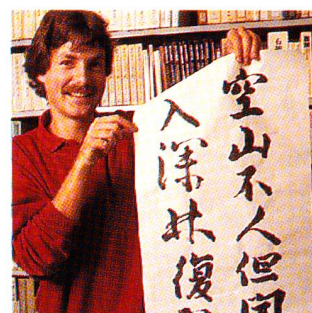 空山不人但闻
入深林復